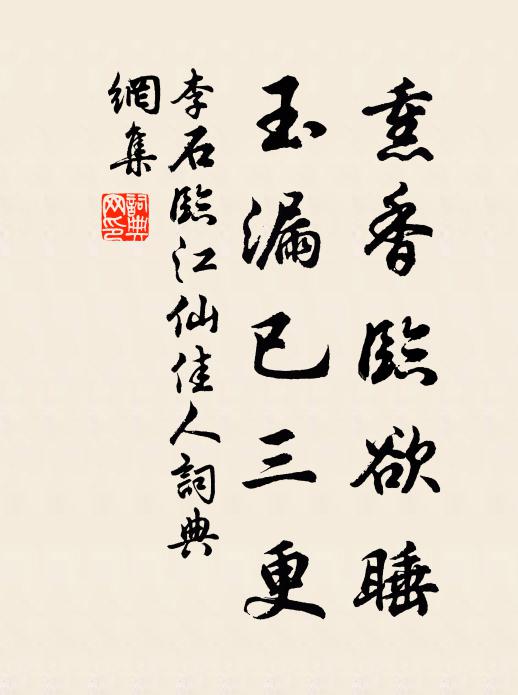 熏香臨欲睡
玉漏已三更
李石臨江仙佳人詞典
網集
詞典
网印